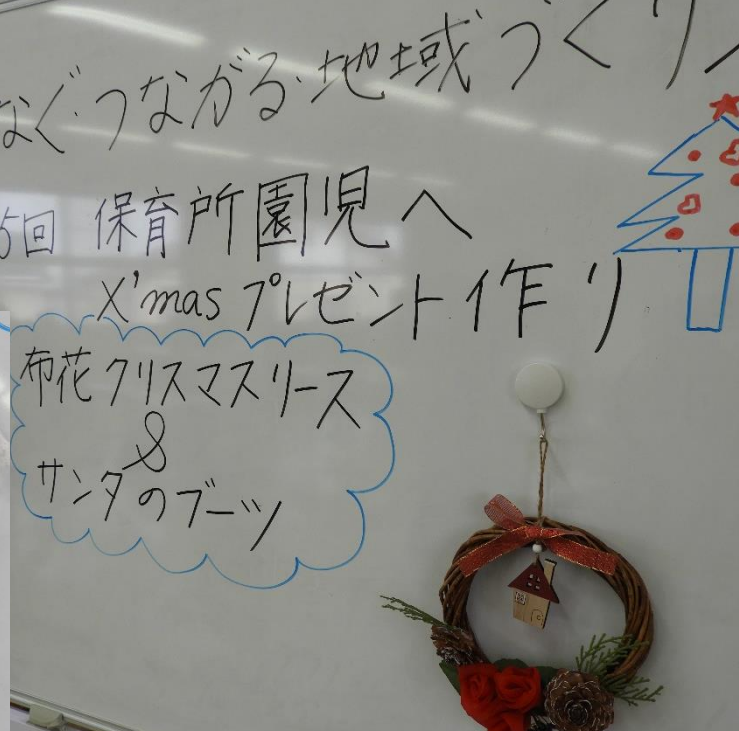 なぐ・つながる・地域づくり
5回 保育所園児へ
X'mas プレゼント作り
布花クリスマスリース
&
サンタのブーツ